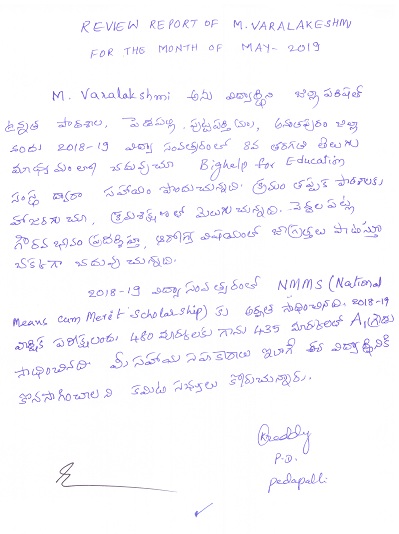 REVIEW REPORT OF M.VARALAKESHMI
FOR THE MONTH OF MAY-2019
M. Varalakshmi అను విద్యార్థిని జిల్లా పరిషత్
ఉన్నత పాఠశాల, పెడపల్లి, పుట్టపర్తి మం, అనంతపురం జిల్లా
నందు 2018-19 విద్యా సంవత్సరంలో 8వ తరగతి తెలుగు
మాధ్యమంలో చదువుచూ Bighelp for Education
సంస్థ ద్వారా సహాయం పొందుచున్నది. క్రమం తప్పక పాఠశాలకు
హాజరగుచూ, క్రమశిక్షణతో మెలుగుచున్నది. పెద్దలపట్ల
గౌరవభావం ప్రదర్శిస్తూ, ఆరోగ్య విషయంలో జాగ్రత్తలు పాటిస్తూ
చక్కగా చదువుచున్నది.
2018-19 విద్యాసంవత్సరంలో NMMS (National
Means cum Merit Scholarship) కు అర్హత సాధించినది. 2018-19
వార్షిక పరీక్షలందు 480 మార్కులకు గాను 435 మార్కులతో A1 గ్రేడు
సాధించినది. మీ సహాయ సహకారాలు ఇలాగే ఈ విద్యార్థినికి
కొనసాగించాలని కమిటి సభ్యులు కోరుచున్నారు.
KReddy
P.D.
pedapalli